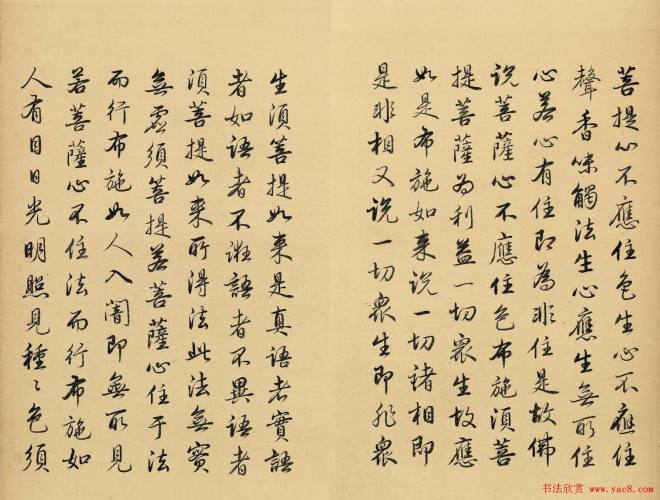 菩提心不應住色生心不應住
聲香味觸法生心應生無所住
心若心有住即為非住是故佛
说菩薩心不應住色布施須菩
提菩薩為利益一切眾生故應
如是布施如来说一切諸相即
是非相又说一切眾生即非眾
生須菩提如来是真語者實語
者如語者不誑語者不異語者
須菩提如来所得法此法無實
無虚須菩提若菩薩心住于法
而行布施如人入闇即無所見
若菩薩心不住法而行布施如
人有目日光明照見種〻色須
书法欣赏 www.yac8.com